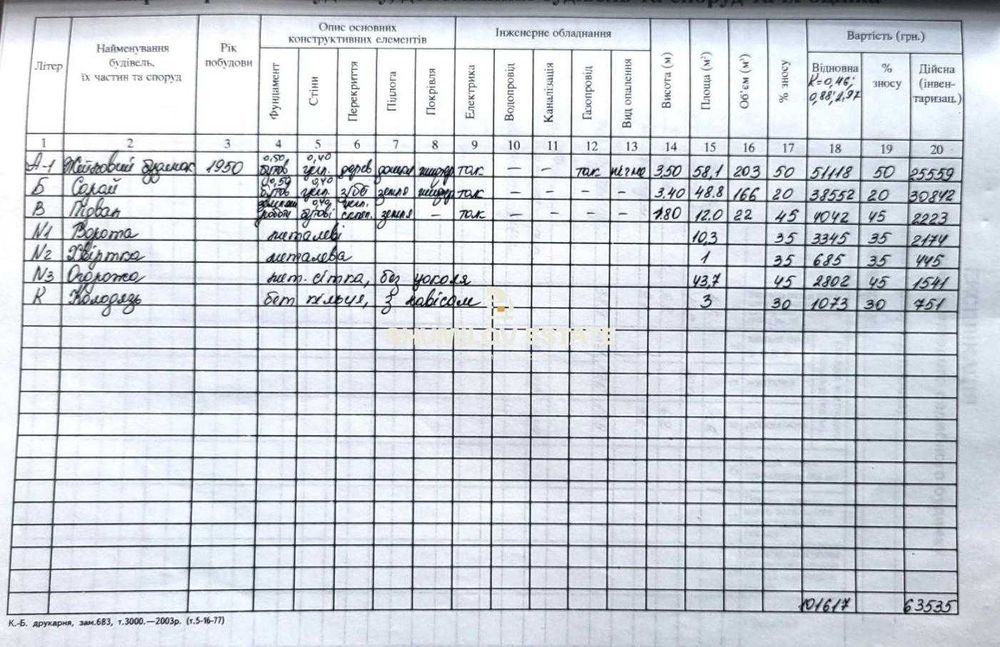 Опис основних конструктивних елементів
Інженерне обладнання
Вартість (грн.)
Літер
Найменування будівель, їх частин та споруд
Рік побудови
Фундамент
Стіни
Перекриття
Підлога
Покрівля
Електрика
Водопровід
Каналізація
Газопровід
Вид опалення
Висота (м)
Площа (м²)
Об'єм (м³)
% зносу
Відновна К=0,46; 0,88; 2,97
% зносу
Дійсна (інвентаризац.)
1 2 3 4 5 6 7 8 9 10 11 12 13 14 15 16 17 18 19 20
0,50 0,40
А-1 Житловий будинок 1950 бутов цегл. дерев дощат шифер так — — так пічне 3,50 58,1 203 50 51118 50 25559
0,50 0,40
Б Сарай бутов цегл. з/бет земля шифер так — — — — 3.40 48.8 166 20 38552 20 30842
В Підвал бутові склеп. земля — так — — — — 1.80 12.0 22 45 4042 45 2223
N1 Ворота металеві 10,3 35 3345 35 2174
N2 Хвіртка металева 1 35 685 35 445
N3 Огорожа мет. сітка, без цоколя 43,7 45 2802 45 1541
К Колодязь бет. кільця, з навісом 3 30 1073 30 751
SHUMILOV ESTATE
101617 63535
К.-Б. друкарня, зам.683, т.3000.—2003р. (т.5-16-77)